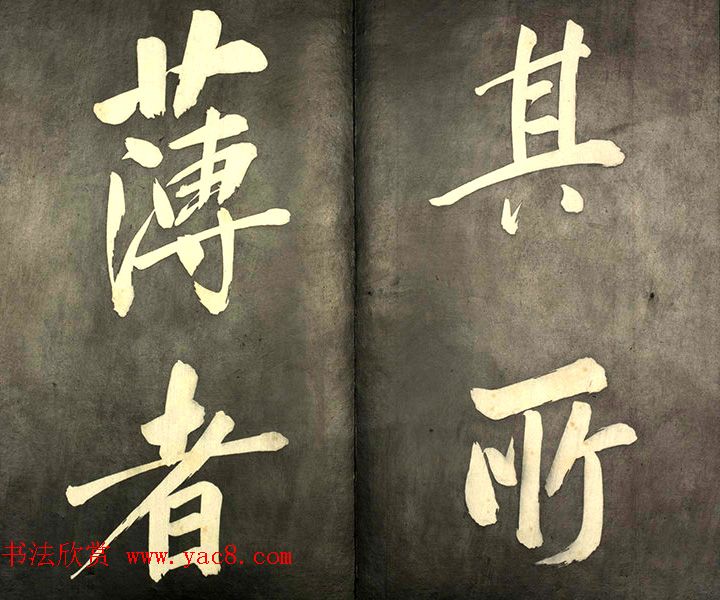 其所
薄者
书法欣赏 www.yac8.com